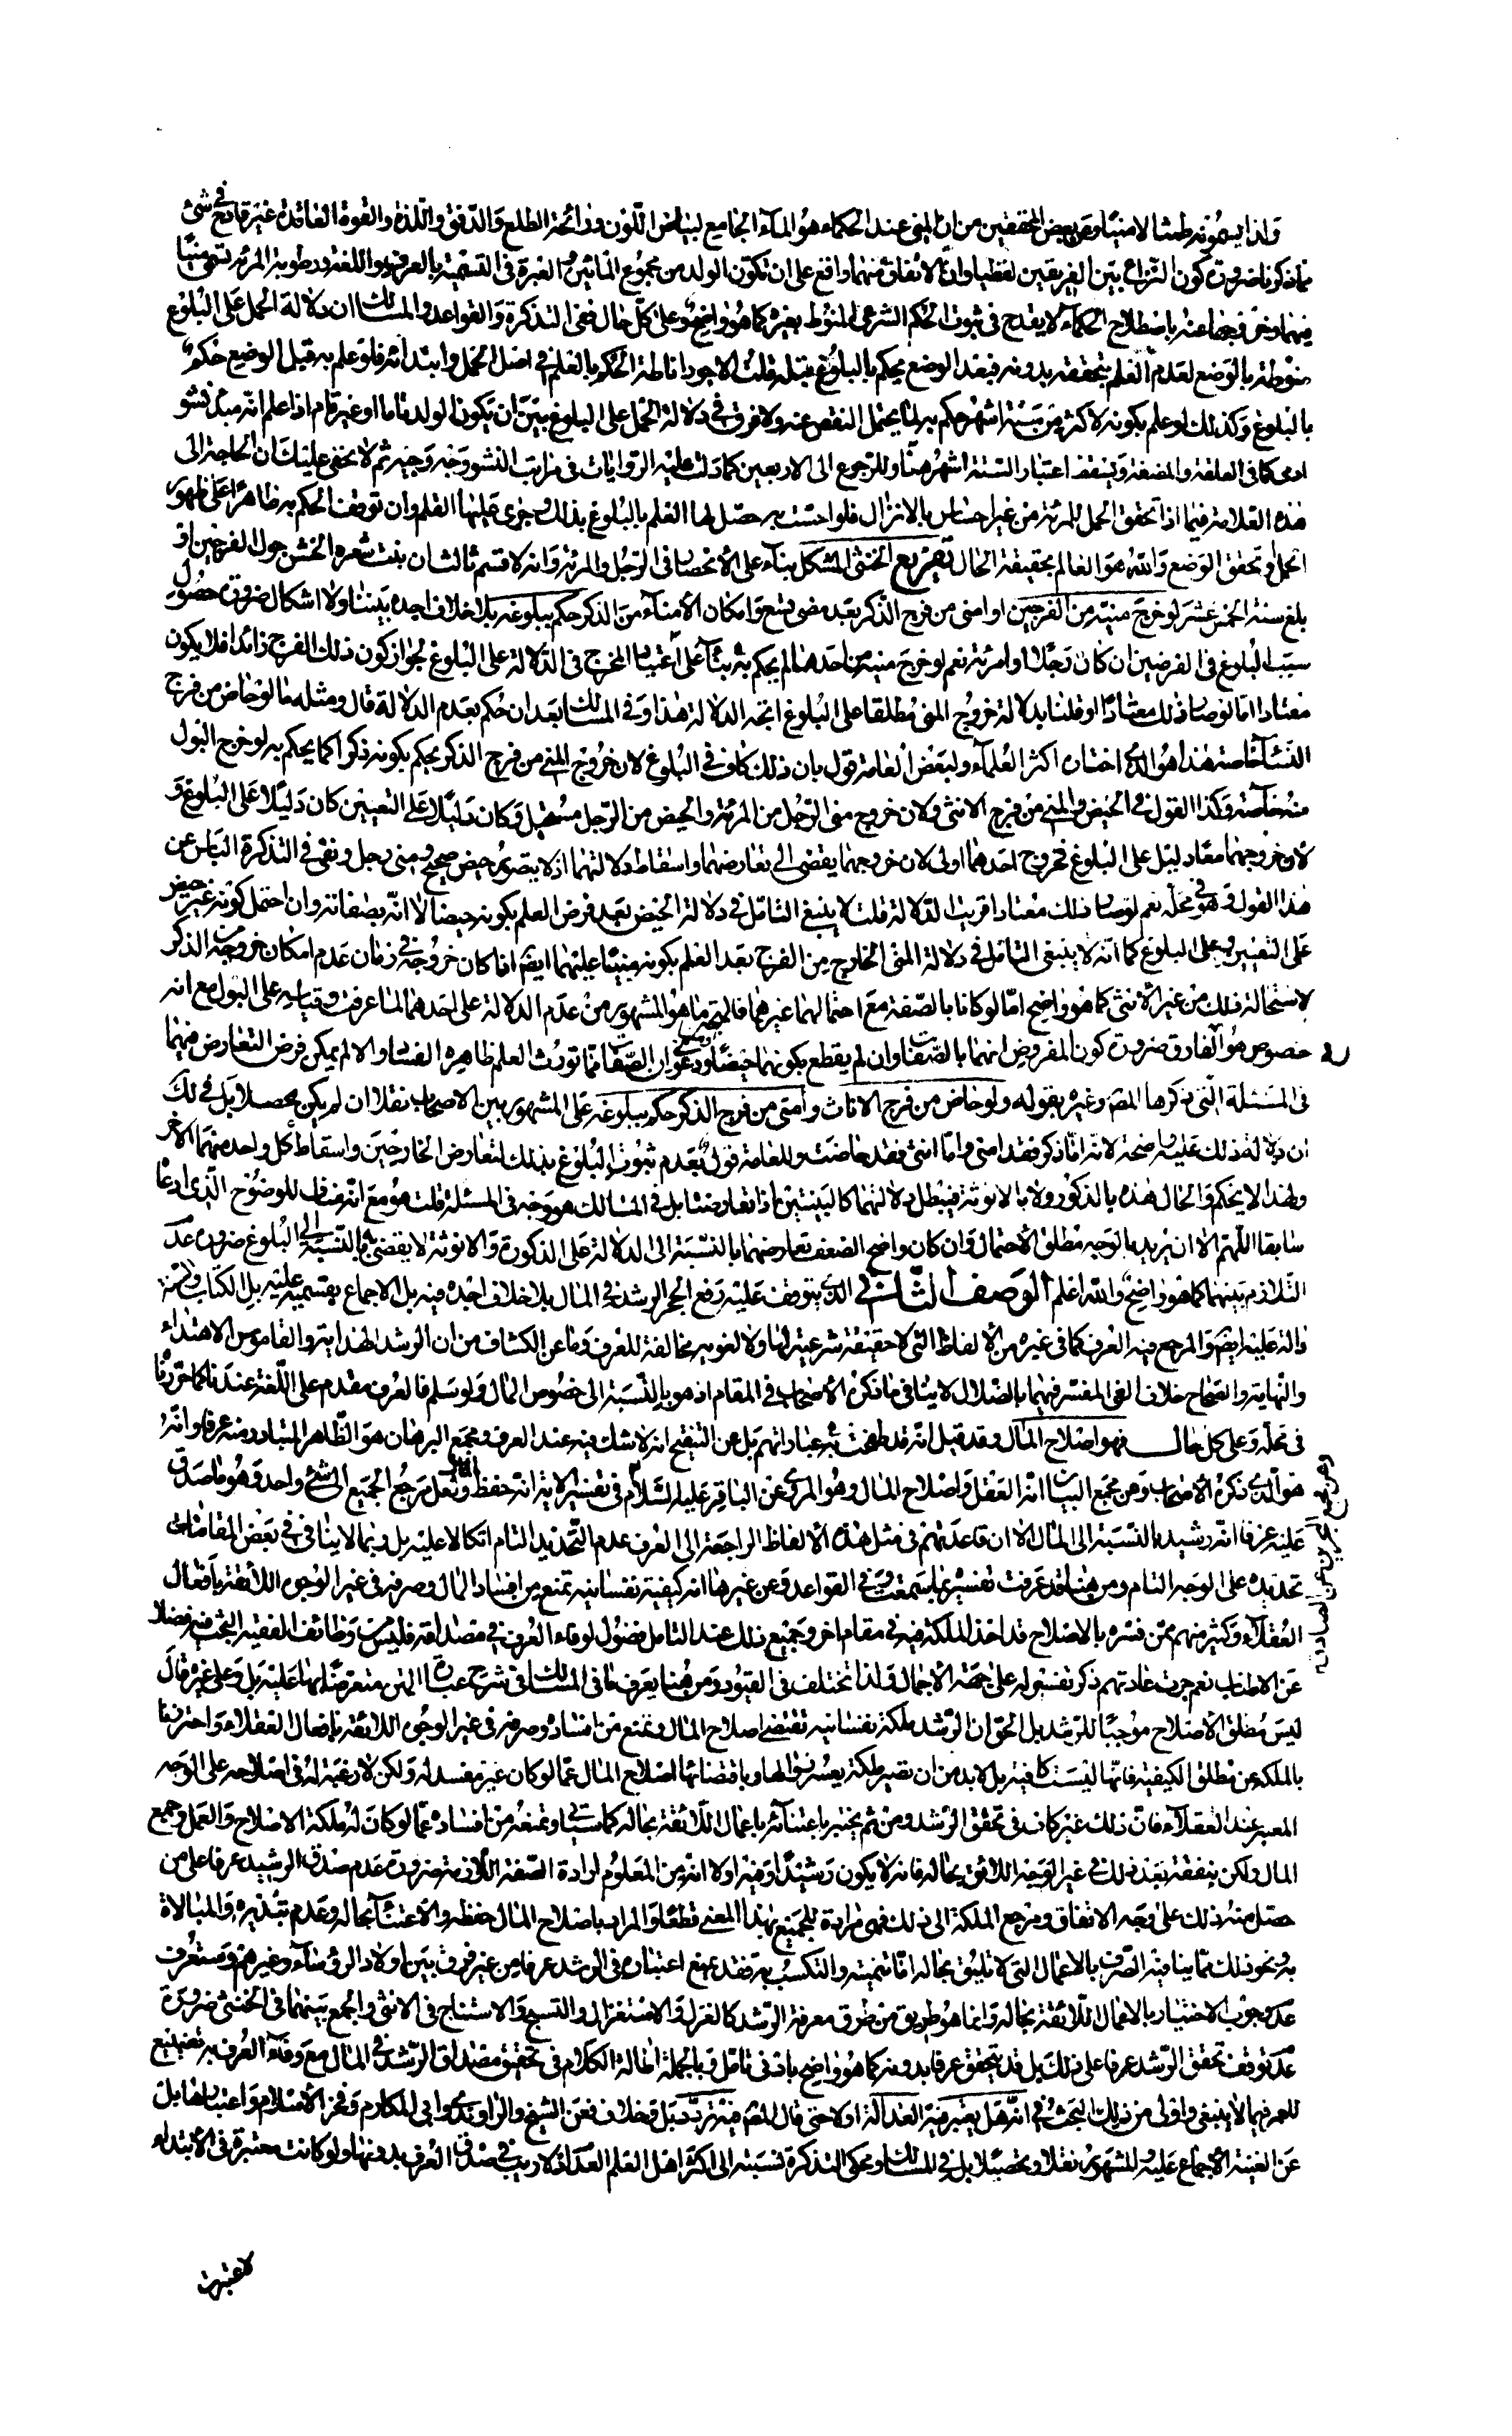 ولذا يسمونه طمثا لا منيا وعن بعض المحققين من ان المني عند الحكماء هو الماء الجامع لبياض اللون ورائحة الطلع والدفق واللذة والقوة العاقدة غير قادح في شئ
مما ذكرنا ضرورة كون النزاع بين الفريقين لفظيا وان الاتفاق منهما واقع على ان تكون الولد من مجموع المائين والعبرة في التسمية بالعرف واللغة ورطوبة المرئة تسمى منيا
فيهما وخروجها عنه باصطلاح الحكماء لا يقدح في ثبوت الحكم الشرعي المنوط بغيره كما هو واضح وعلى كل حال ففي التذكرة والقواعد والمسالك ان دلالة الحمل على البلوغ
منوطة بالوضع لعدم العلم بتحققه بدونه فبعد الوضع يحكم بالبلوغ قبله قلت الاجود اناطة الحكم بالعلم في اصل الحمل وابتدائه فلو علم به قبل الوضع حكم
بالبلوغ وكذلك لو علم بكونه لاكثر من ستة اشهر حكم به لما يحتمل النقص عنه ولا فرق في دلالة الحمل على البلوغ بين ان يكون الولد تاما او غير تام اذا علم انه مبدء نشو
ادمي كما في العلقة والمضغة ويسقط اعتبار الستة اشهر هنا وللرجوع الى الاربعين كما دلت عليه الروايات في مراتب النشو وجه وجيه ثم لا يخفى عليك ان الحاجة الى
هذه العلامة فيما اذا تحقق الحمل للمرئة من غير احساس بالانزال فلو احست به حصل لها العلم بالبلوغ بذلك وجرى عليها القلم وان توقف الحكم به ظاهرا على ظهور
الحمل او تحقق الوضع والله هو العالم بحقيقة الحال تفريع الخنثى المشكل بناء على الانحصار في الرجل والمرئة وانه لا قسم ثالث ان نبت شعره الخشن حول الفرجين او
بلغ سنه الخمس عشر لو خرج منيه من الفرجين او امنى من فرج الذكر بعد مضي تسع وامكان الامناء من الذكر حكم ببلوغه بلا خلاف اجده بيننا ولا اشكال ضرورة حصول
سبب البلوغ في الفرضين ان كان رجلا او امرئة نعم لو خرج منيه من احدهما لم يحكم به بناء على اعتبار المخرج في الدلالة على البلوغ لجواز كون ذلك الفرج زائدا فلا يكون
معتادا اما لو صار ذلك معتادا او قلنا بدلالة خروج المني مطلقا على البلوغ اتجه الدلالة هذا وفي المسالك بعد ان حكم بعدم الدلالة قال ومثله ما لو حاض من فرج
النساء خاصة هذا هو الذي اختاره اكثر العلماء ولبعض العامة قول بان ذلك كاف في البلوغ لان خروج المني من فرج الذكر يحكم بكونه ذكرا كما يحكم به لو خرج البول
منه خاصة وكذا القول في الحيض والمني من فرج الانثى ولان خروج مني الرجل من المرئة والحيض من الرجل مستحيل فكان دليلا على التعيين كان دليلا على البلوغ و
لان خروجهما معا دليل على البلوغ فخروج احدهما اولى لان خروجهما يفضي الى تعارضهما واسقاط دلالتهما اذ لا يتصور حيض صحيح ومني رجل ونفى في التذكرة الباس عن
هذا القول وهو في محله نعم لو صار ذلك معتادا قربت الدلالة قلت لا ينبغي التامل في دلالة الحيض بعد فرض العلم بكونه حيضا لا انه بصفاته وان احتمل كونه غير حيض
على التعيين وعلى البلوغ كما انه لا ينبغي التامل في دلالة المني الخارج من الفرج بعد العلم بكونه منيا عليهما ايضم اذا كان خروجه في زمان عدم امكان خروجه من الذكر
لاستحالة ذلك من غير الانثى كما هو واضح اما لو كانا بالصفة مع احتمالهما غيرهما فالمتجه ما هو المشهور من عدم الدلالة على احدهما لما عرفت وقياسه على البول مع انه
خصوص هو الفارق ضرورة كون المفروض انهما بالصفات وان لم يقطع بكونهما حيضا ومنيا ودعوى ان الصفات مما تورث العلم ظاهره الفساد والا لم يمكن فرض التعارض فيهما
في المسئلة التي ذكرها المصم وغيره بقوله ولو حاض من فرج الاناث وامنى من فرج الذكر حكم ببلوغه على المشهور بين الاصحاب نقلا ان لم يكن محصلا بل في لك
ان دلالة ذلك عليه واضحة لانه اما ذكر فقد امنى واما انثى فقد حاضت وللعامة قول بعدم ثبوت البلوغ بذلك لتعارض الخارجين واسقاط كل واحد منهما الاخر
ولهذا لا يحكم والحال هذه بالذكورة ولا بالانوثة فيبطل دلالتهما كالبينتين اذا تعارضتا بل في المسالك هو وجه في المسئلة قلت هو مع انه مناف للوضوح الذي ادعاه
سابقا اللهم الا ان يريد بالوجه مطلق الاحتمال وان كان واضح الضعف تعارضهما بالنسبة الى الدلالة على الذكورة والانوثة لا يقضي به بالنسبة الى البلوغ ضرورة عدم
التلازم بينهما كما هو واضح والله اعلم الوصف الثاني الذي يتوقف عليه رفع الحجر الرشد في المال بلا خلاف اجده فيه بل الاجماع بقسميه عليه بل الكتاب والسنة
دالة عليه ايضم والمرجع فيه العرف كما في غيره من الالفاظ التي لا حقيقة شرعية لها ولا لغوية مخالفة للعرف وما عن الكشاف من ان الرشد الهداية والقاموس الاهتداء
والنهاية والصحاح خلاف الغي المفسر فيهما بالضلال لا ينافي ما ذكره الاصحاب في المقام اذ هو بالنسبة الى خصوص المال ولو سلم فالعرف مقدم على اللغة عندنا كما حررناه
في محله وعلى كل حال فهو اصلاح المال وقد قيل انه قد طفحت به عباراتهم بل عن التنقيح انه لا شك فيه عند العرف ومجمع البرهان هو الظاهر المتبادر منه عرفا وانه
هو الذي ذكره الاصحاب ومن مجمع البيان انه العقل واصلاح المال وهو المروي عن الباقر عليه السلام في تفسير الاية انه حفظ المال ولعل مرجع الجميع الى شئ واحد وهو ما صدق
وعن مجمع البحرين عن الصادق
عليه عرفا انه رشيد بالنسبة الى المال الا ان قاعدتهم في مثل هذه الالفاظ الراجعة الى العرف عدم التحديد التام اتكالا عليه بل ربما لا ينافي في بعض المقامات
تحديده على الوجه التام ومن هنا قد عرفت تفسيره بما سمعت وفي القواعد وعن غيرها انه كيفية نفسانية تمنع من افساد المال وصرفه في غير الوجوه اللائقة بافعال
العقلاء وكثير منهم ممن فسره بالاصلاح قد اخذ الملكة فيه في مقام اخر وجميع ذلك عند التامل فضول لوفاء العرف في مصداقه فليس من وظائف الفقيه البحث فيه فضلا
عن الاطناب نعم جرت عادتهم ذكر تفسير له على جهة الاجمال ولذا تختلف في القيود ومن هنا يعرف ما في المسالك في شرح عبارة المتن متعرضا لها عليه بل وعلى غيره قال
ليس مطلق الاصلاح موجبا للرشد بل الحق ان الرشد ملكة نفسانية تقتضي اصلاح المال وتمنع من افساده وصرفه في غير الوجوه اللائقة بافعال العقلاء واحترزنا
بالملكة عن مطلق الكيفية فانها ليست كافية بل لا بد من ان تصير ملكة يعسر زوالها وباقتضائها اصلاح المال عما لو كان غير مفسد له ولكن لا رغبة له في اصلاحه على الوجه
المعتبر عند العقلاء فان ذلك غير كاف في تحقق الرشد ومن ثم يختبر باعتنائه باعمال اللائقة بحاله كما سياتي وتمنعه من افساده عما لو كان له ملكة الاصلاح والعمل وجمع
المال ولكن ينفقه بعد ذلك في غير الوجه اللائق بحاله فانه لا يكون رشيدا وفيه اولا انه من المعلوم ارادة الصفة اللازمة ضرورة عدم صدق الرشيد عرفا على من
حصل منه ذلك على وجه الاتفاق ومرجع الملكة الى ذلك فهي مرادة للجميع بهذا المعنى قطعا والمراد باصلاح المال حفظه والاعتناء بحاله وعدم تبذيره والمبالاة
به ونحو ذلك مما ينافيه الصرف بالاعمال التي لا تليق بحاله اما تنميته والتكسب به فقد يمنع اعتباره في الرشد عرفا من غير فرق بين اولاد الرؤساء وغيرهم وستعرف
عدم وجوب الاختبار بالاعمال اللائقة بحاله وانما هو طريق من طرق معرفة الرشد كالغزل والاستغزال والنسج والاستنتاج في الانثى والجمع بينهما في الخنثى ضرورة
عدم توقف تحقق الرشد عرفا على ذلك بل قد يتحقق عرفا بدونه كما هو واضح بادنى تامل وبالجملة اطالة الكلام في تحقيق مصداق الرشد في المال مع وفاء العرف به تضييع
للعمر فيما لا ينبغي واولى من ذلك البحث في انه هل يعتبر فيه العدالة اولا حتى قال المصم فيه تردد بل وخلاف فعن الشيخ والراوندي وابي المكارم وفخر الاسلام واعتبارها بل
عن الغنية الاجماع عليه والمشهور نقلا وتحصيلا بل في المسالك ومحكي التذكرة نسبته الى اكثر اهل العلم العدم لا ريب في صدق العرف بدونها ولو كانت معتبرة في الابتداء
لاعتبرت